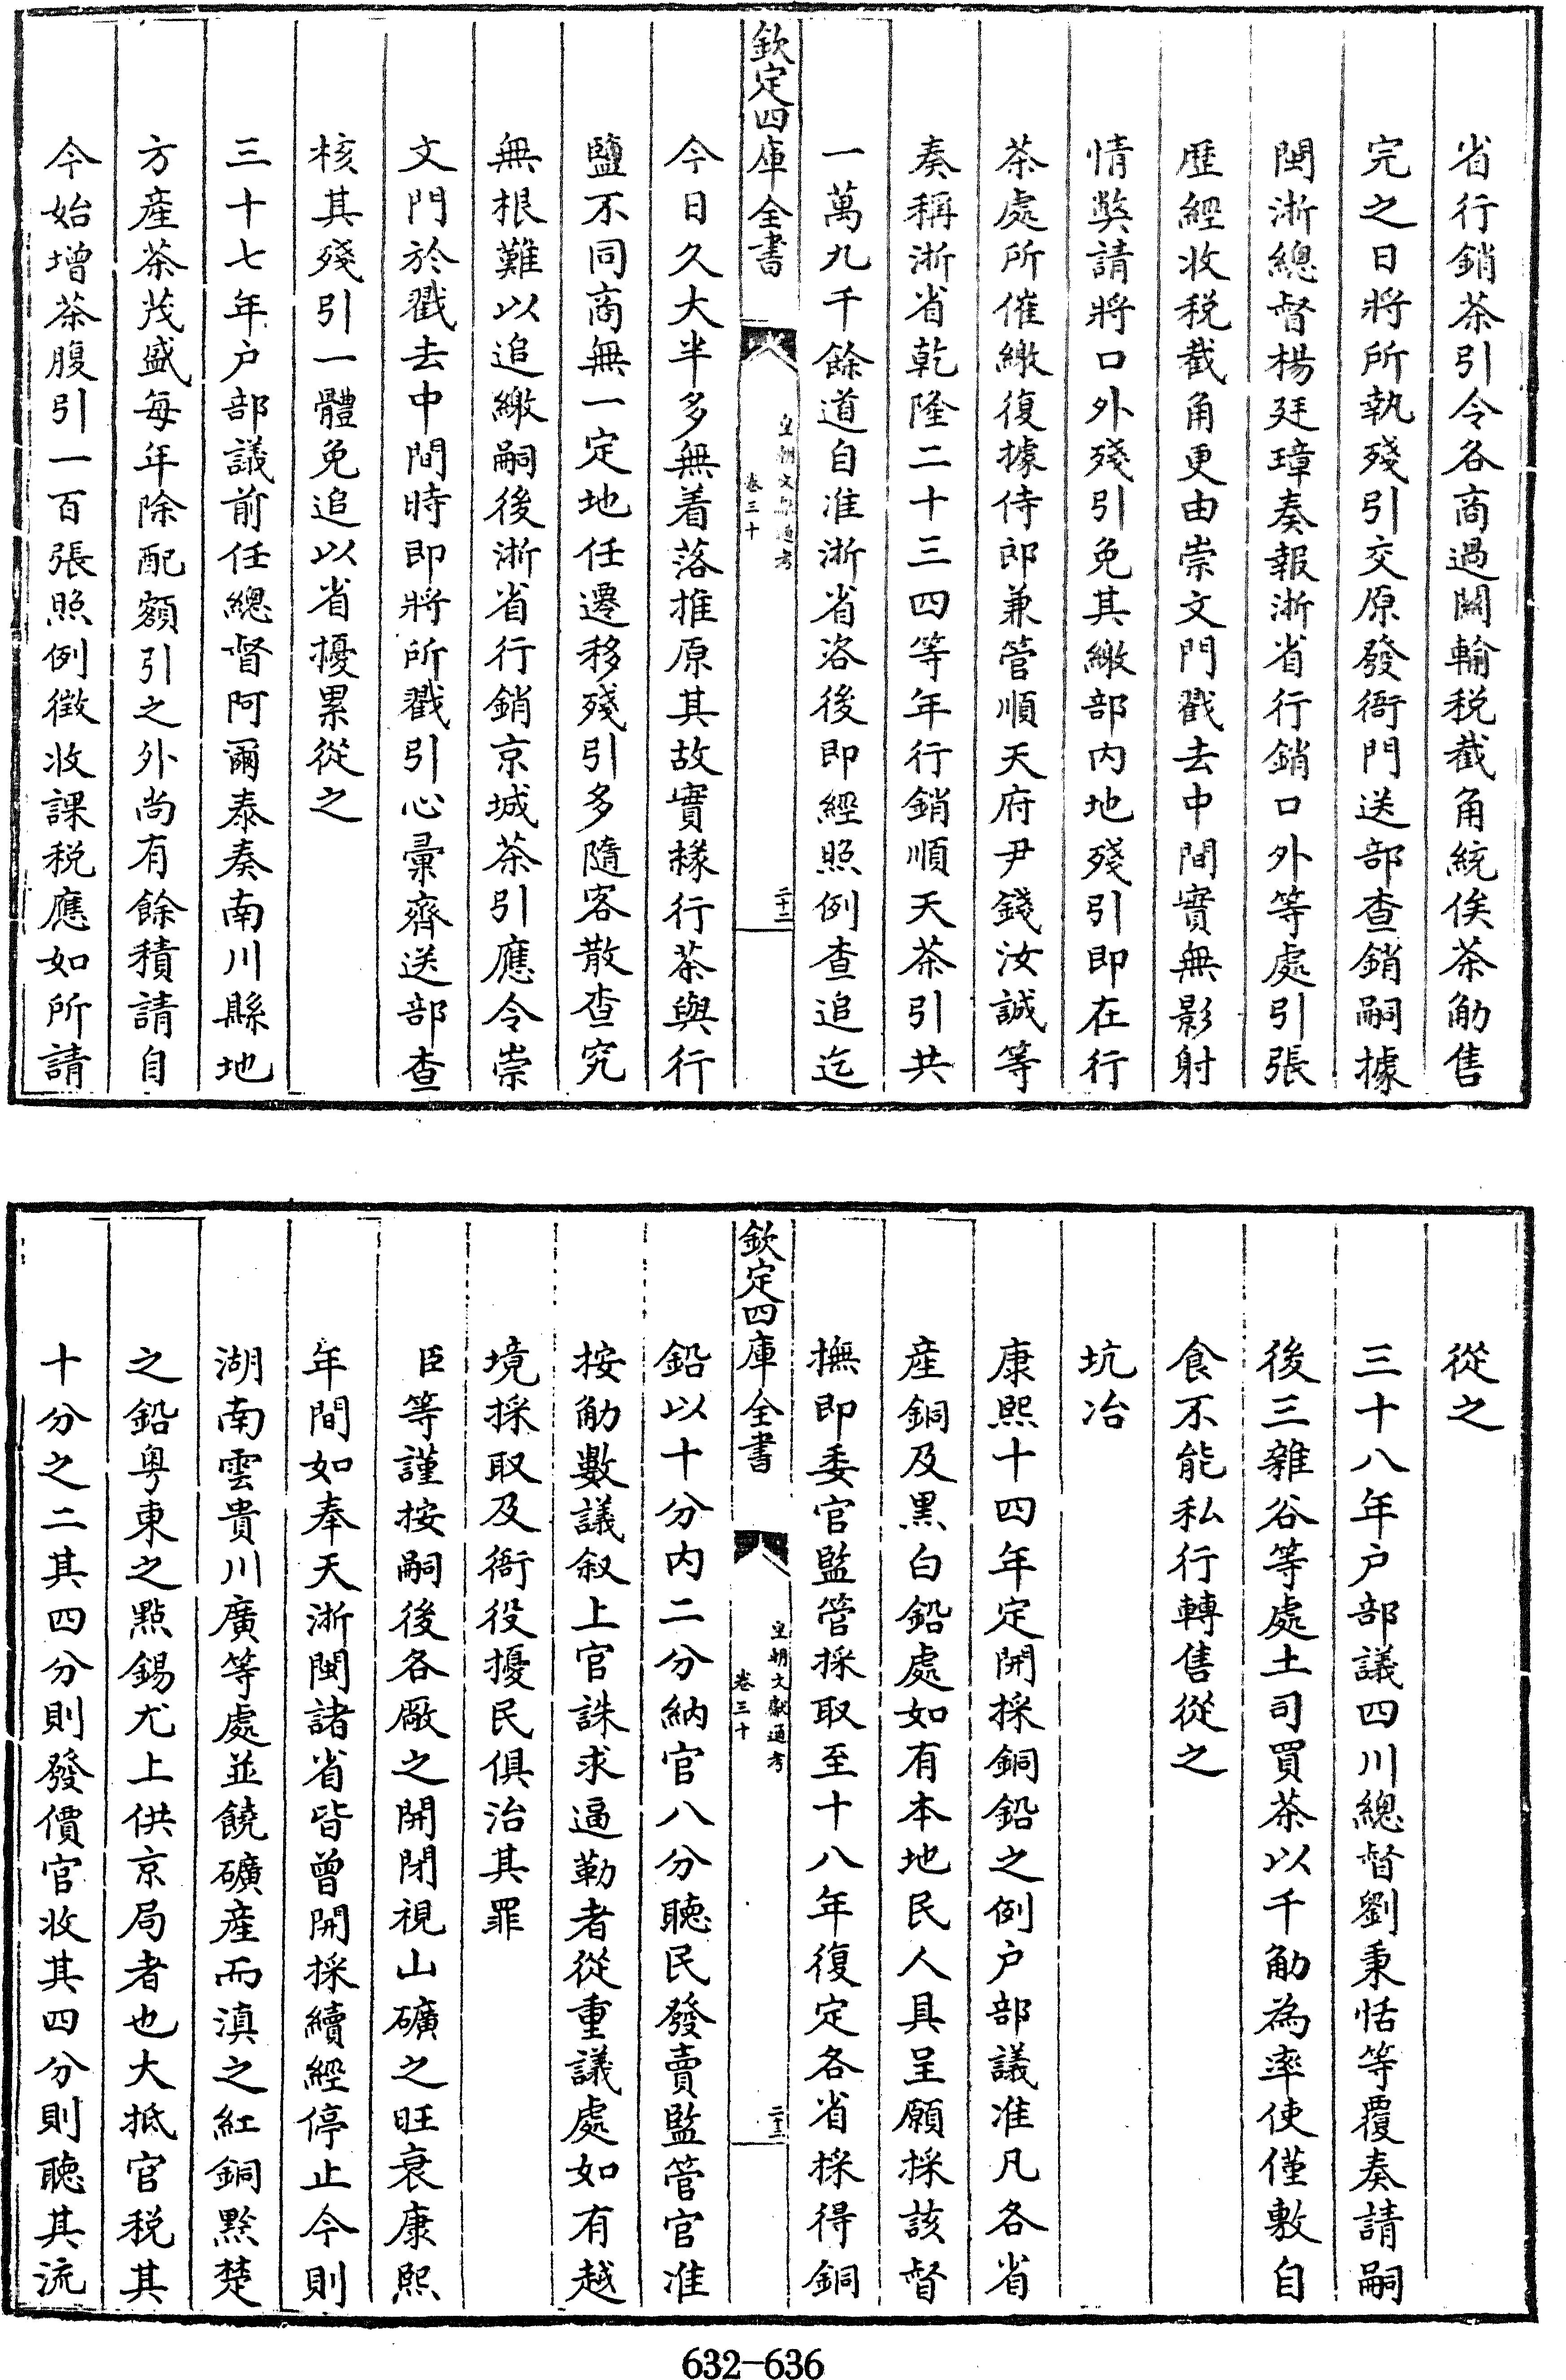 省行銷茶引令各商過關輸稅截角統俟茶觔售
完之日將所執殘引交原發衙門送部查銷嗣據
閩淅總督楊廷璋奏報淅省行銷口外等處引張
歷經收稅截角更由崇文門戳去中間實無影射
情獘請將口外殘引免其繳部内地殘引即在行
茶處所催繳復據侍郎兼管順天府尹錢汝誠等
奏稱淅省乾隆二十三四等年行銷順天茶引共
一萬九千餘道自准淅省洛後即經照例查追迄
欽定四庫全書
皇朝文獻通考
卷三十
二十二
今日久大半多無着落推原其故實緣行茶與行
鹽不同商無一定地任遷移殘引多隨客散查究
無根難以追繳嗣後淅省行銷京城茶引應令崇
文門於戳去中間時即將所戳引心彙齊送部查
核其殘引一體免追以省擾累從之
三十七年户部議前任總督阿爾泰奏南川縣地
方產茶茂盛每年除配額引之外尚有餘積請自
今始增茶腹引一百張照例徵收課稅應如所請
從之
三十八年户部議四川總督劉秉恬等覆奏請嗣
後三雜谷等處土司買茶以千觔為率使僅敷自
食不能私行轉售從之
坑冶
康熙十四年定開採銅鉛之例户部議准凡各省
產銅及黑白鉛處如有本地民人具呈願採該督
撫即委官監管採取至十八年復定各省採得銅
欽定四庫全書
皇朝文獻通考
卷三十
二十三
鉛以十分内二分納官八分聽民發賣監管官准
按觔數議叙上官誅求逼勒者從重議處如有越
境採取及衙役擾民俱治其罪
臣等謹按嗣後各廠之開閉視山礦之旺衰康熙
年間如奉天淅閩諸省皆曾開採續經停止今則
湖南雲貴川廣等處並饒礦產而滇之紅銅黔楚
之鉛粵東之點錫尤上供京局者也大抵官稅其
十分之二其四分則發價官收其四分則聽其流
632-636